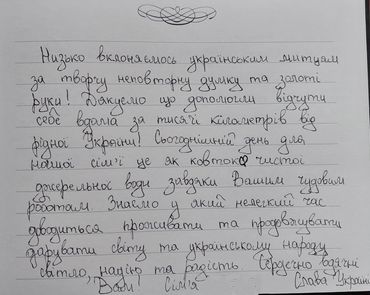 Низько вклоняємось українським митцям
за творчу неповторну думку та золоті
руки! Дякуємо що допомогли відчути
себе вдома за тисячі кілометрів від
рідної України! Сьогоднішній день для
нашої сім'ї це як ковток чистої
джерельної води завдяки Вашим чудовим
роботам. Знаємо у який нелегкий час
доводиться проживати та продовжувати
дарувати світу та українському народу
світло, надію та радість Сердечно вдячні
Вам! Сім'я Слава Україні